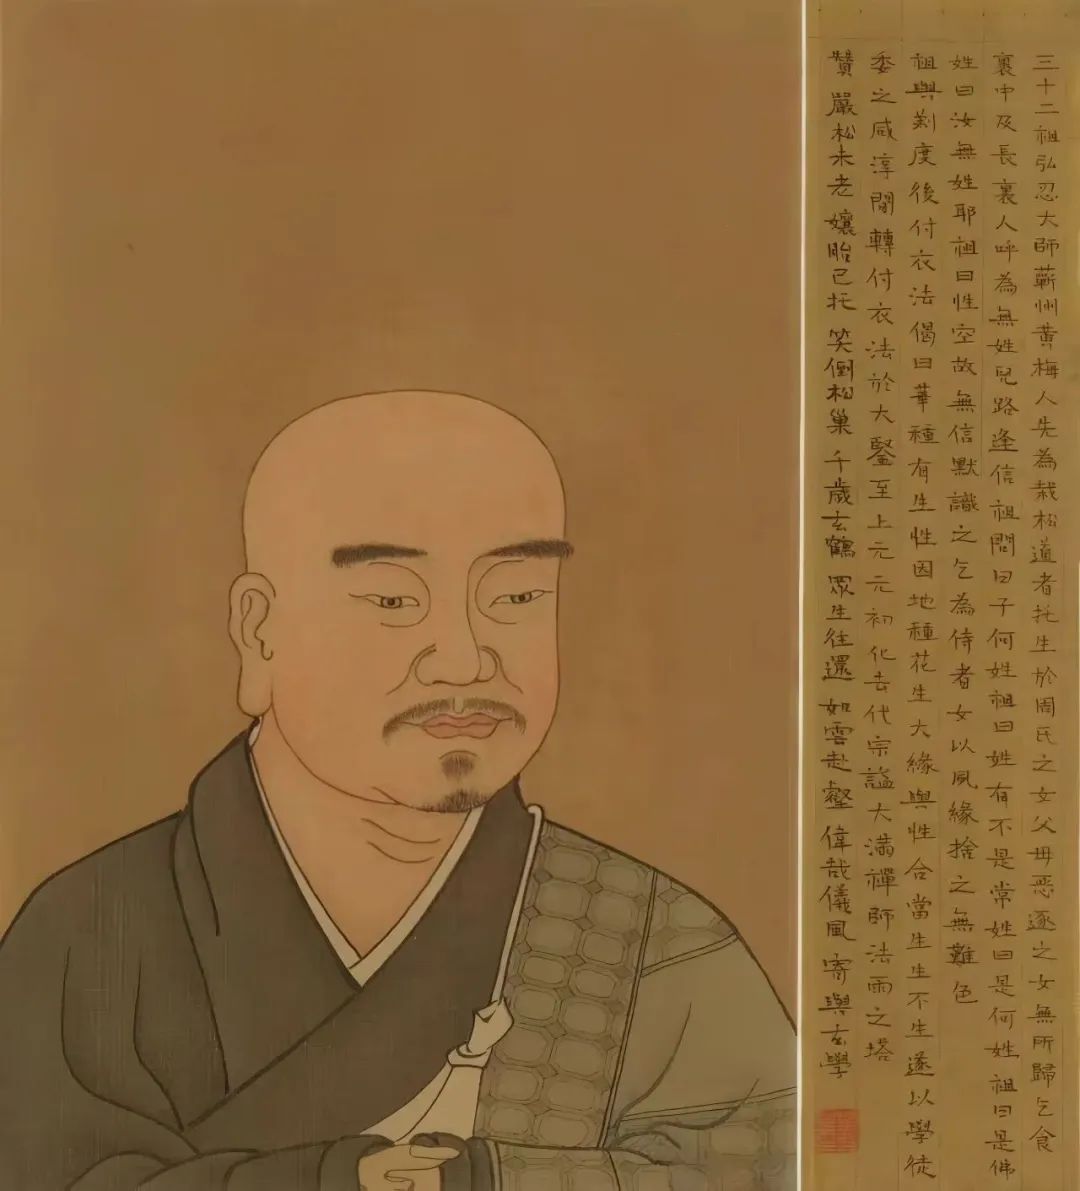 三十二祖弘忍大師蘄州黄梅人先為栽松道者托生於周氏之女父母惡逐之女無所歸乞食
裏中及長裏人呼為無姓兒路逢信祖問曰子何姓祖曰姓有不是常姓曰是何姓祖曰是佛
姓曰汝無姓耶祖曰性空故無信默識之乞為侍者女以夙緣捨之無難色
祖與剃度後付衣法偈曰華種有生性因地種花生大緣與性合當生生不生遂以學徒
委之咸淳間轉付衣法於大鑒至上元元初化去代宗諡大满禪師法雨之塔
贊嚴松未老孃胎已托笑倒松巢千歲玄鶴眾生往還如雲赴壑偉哉儀風寄與玄學